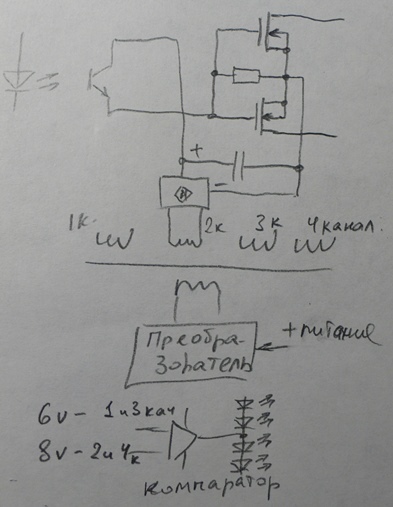 +
-
1к. 2к 3к 4канал.
Преобра-
зователь
+питание
6v- 1и3кан
8v-2и4к
компаратор